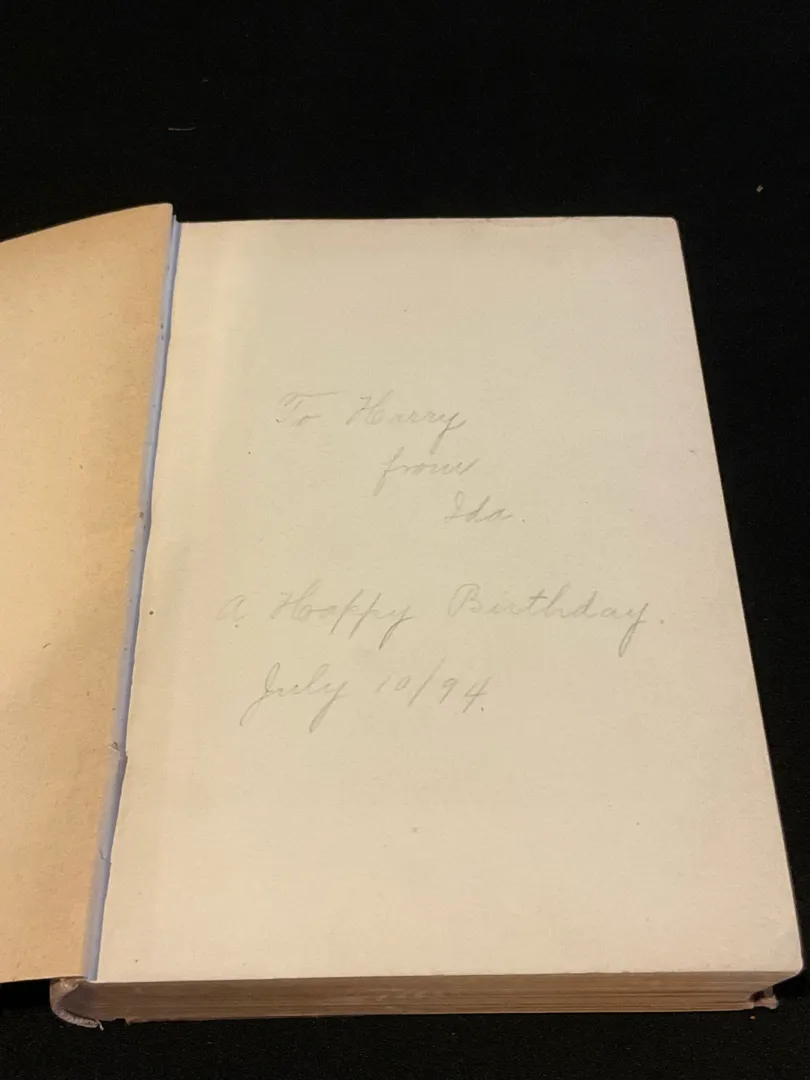 To Harry
from
Ida.
A Happy Birthday.
July 10/94.